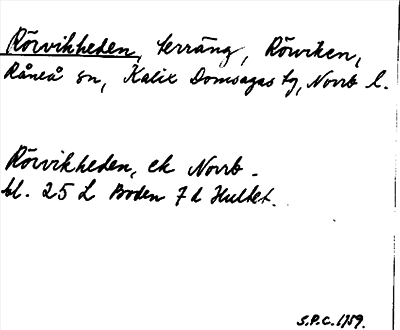 Rörvikheden, terräng, Rörviken,
Råneå sn, Kalix Domsagas tg, Norrb l.
Rörvikheden, ek Norrb.
bl. 25 L Boden 7 d Hultet.
S.P.C. 1959.